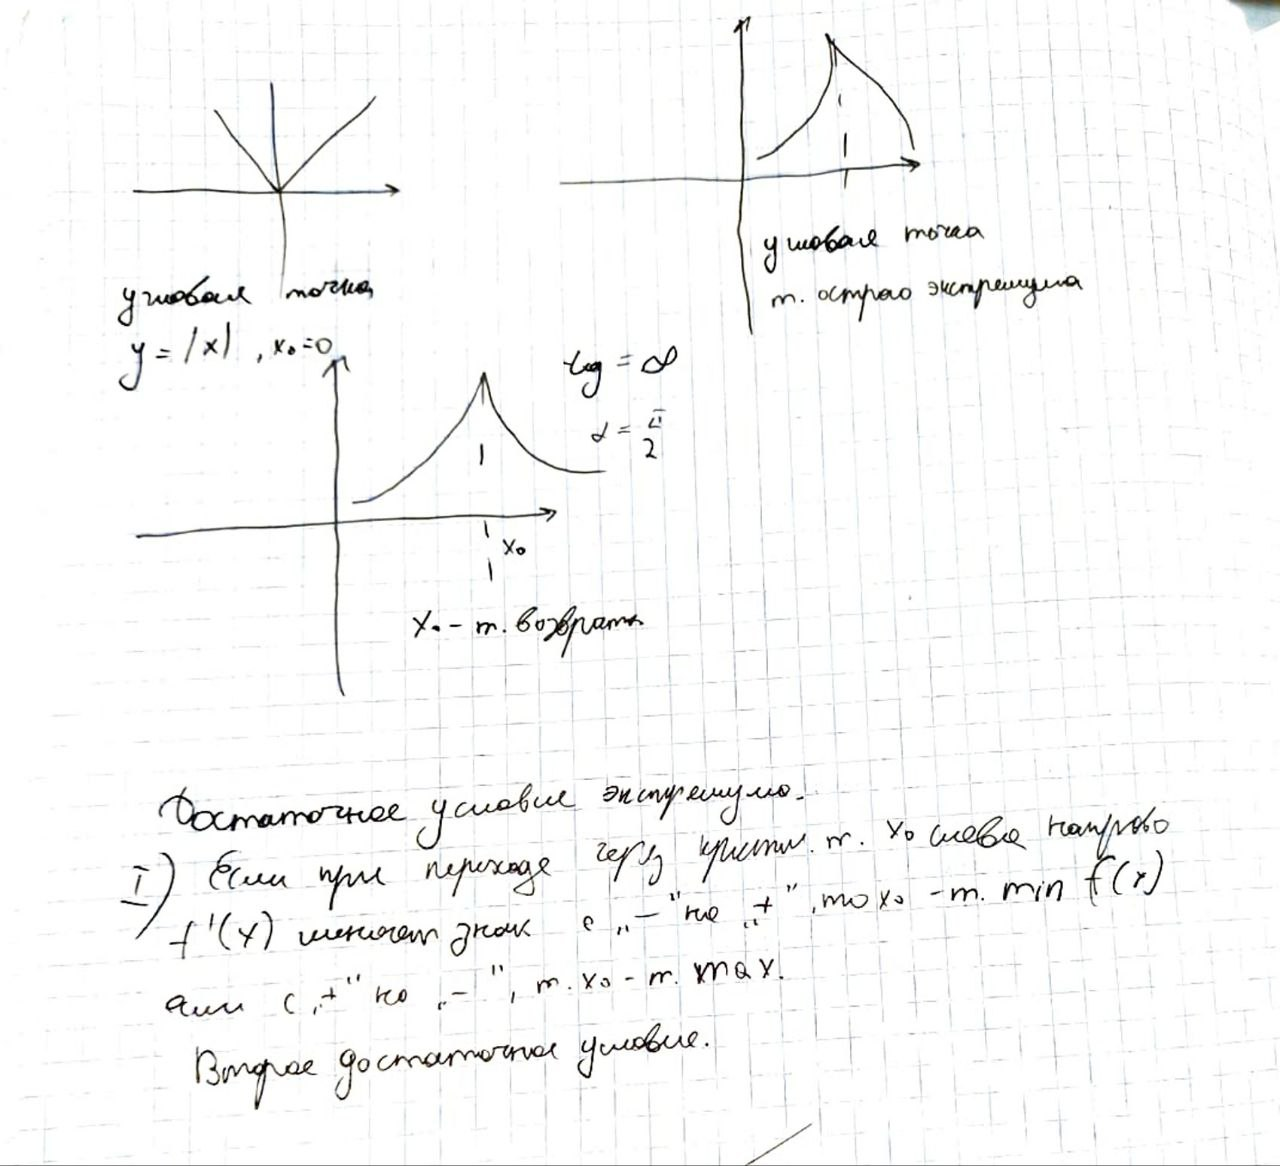 угловая точка
y = |x| , x₀=0
угловая точка
т. острого экстремума
tg = ∞
α = π/2
x₀
x₀ - т. возврата
Достаточное условие экстремума.
I) Если при переходе через критич. т. x₀ слева направо
f'(x) меняет знак с „-" на „+", то x₀ - т. min f(x)
если с „+" на „-", т. x₀ - т. max.
Второе достаточное условие.